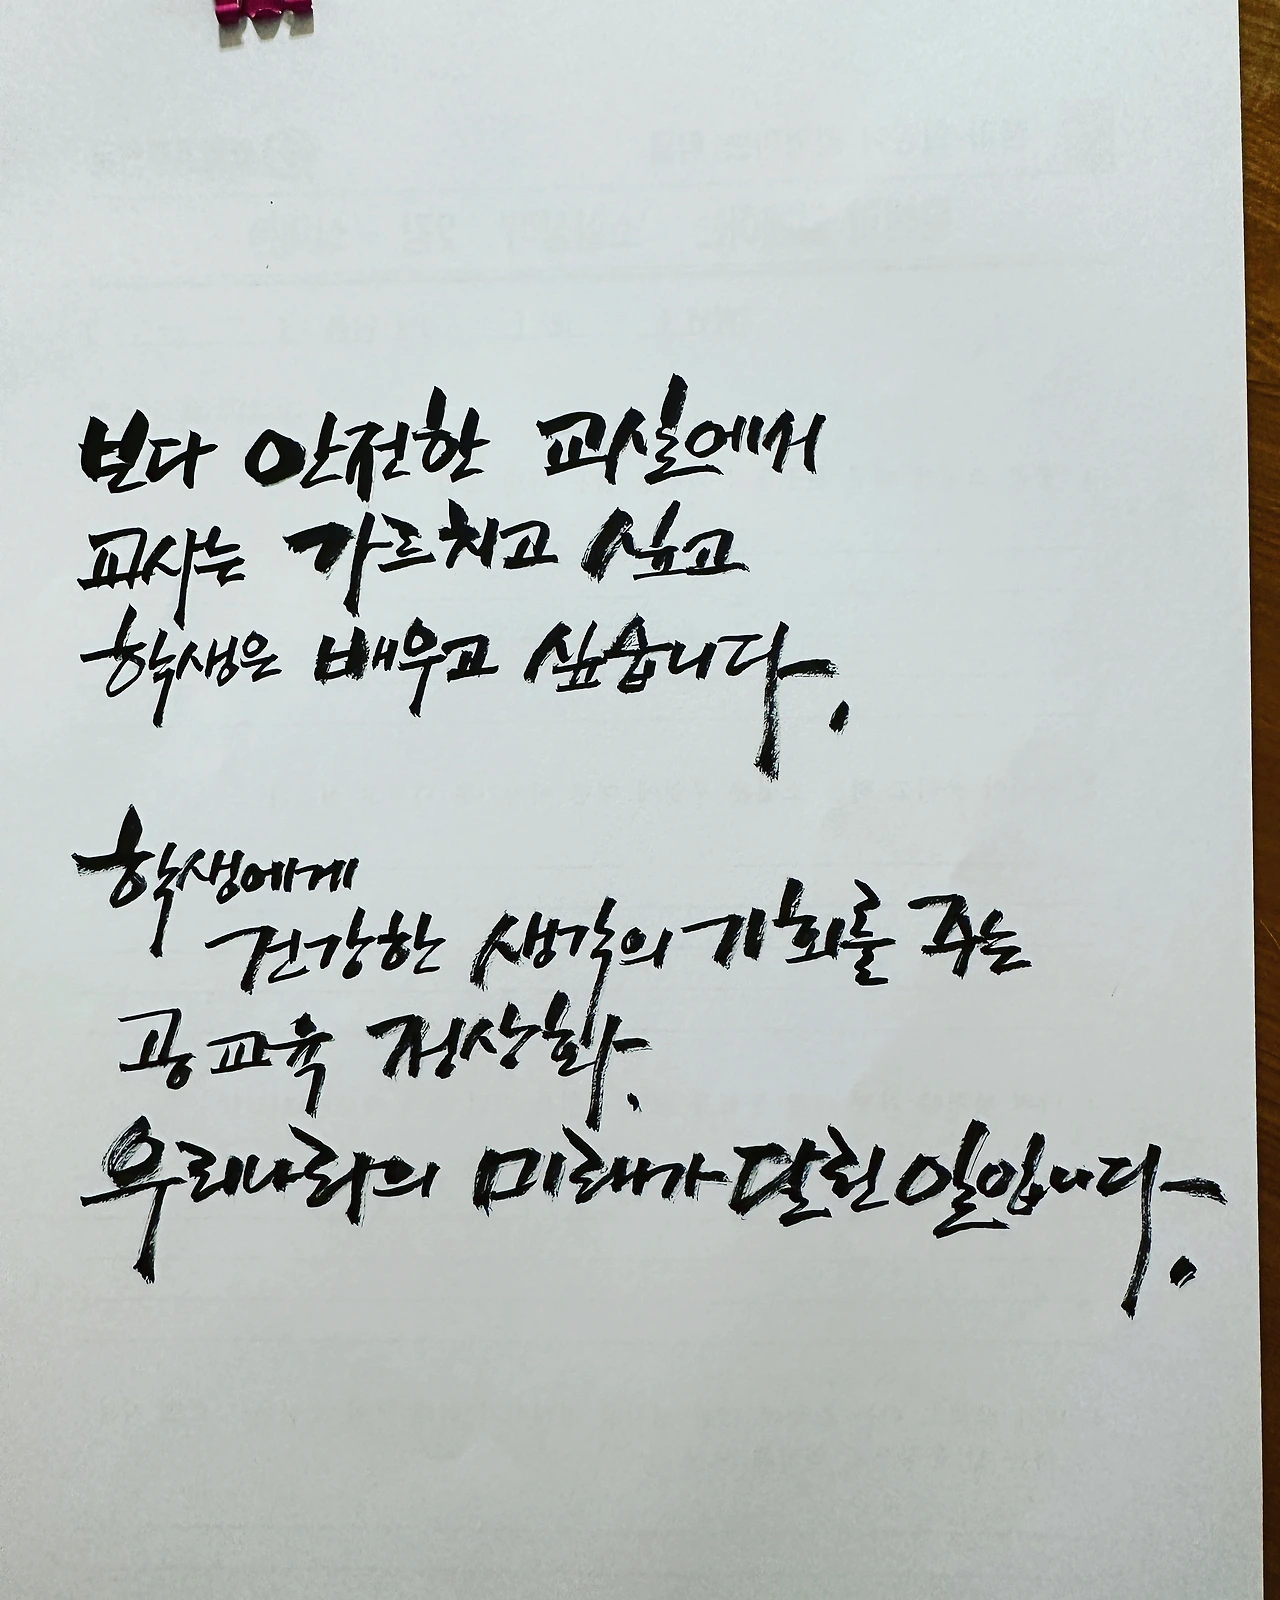 보다 안전한 교실에서
교사는 가르치고 싶고
학생은 배우고 싶습니다.
학생에게
건강한 생각의 기회를 주는
공교육 정상화.
우리나라의 미래가 달린 일입니다.